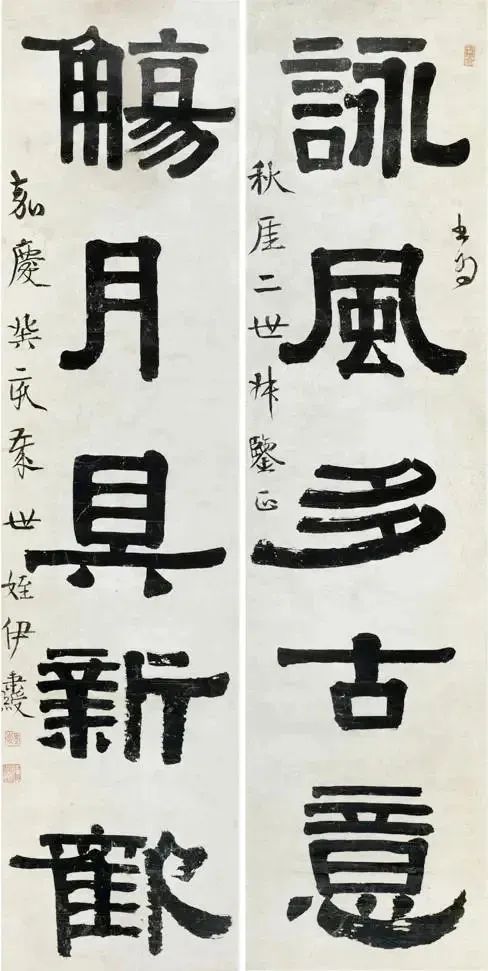 詠風多古意
書為
秋厓二世叔鑒正
觴月具新歡
嘉慶癸亥世姪伊秉綬